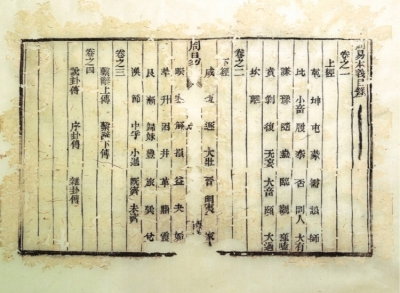 易本義目錄
卷之一
上經
乾 坤 屯 蒙 需 訟 師
比 小畜 履 泰 否 同人 大有
謙 豫 隨 蠱 臨 觀 噬嗑
賁 剝 復 无妄 大畜 頤 大過
坎 離
卷之二
下經
咸 遯 大壯 晉 明夷 家
周易
睽 蹇 解 損 益 夬 姤
萃 升 困 井 革 鼎 震
艮 漸 歸妹 豐 旅 巽 兌
渙 節 中孚 小過 既濟 未濟
卷之三
繫辭上傳 繫辭下傳
卷之四
說卦傳 序卦傳 雜卦傳